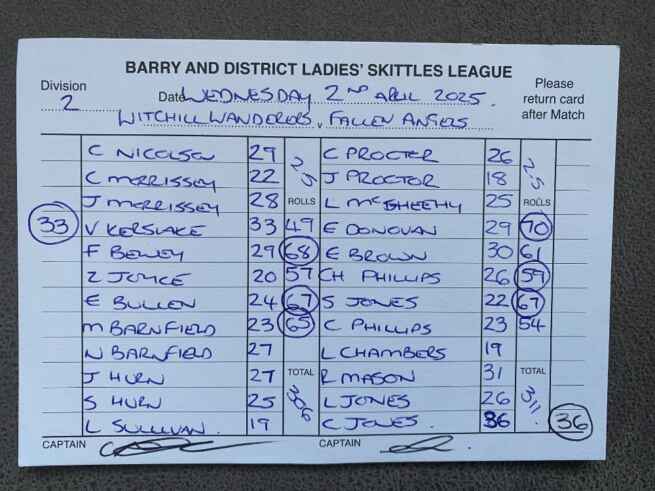 BARRY AND DISTRICT LADIES' SKITTLES LEAGUE
Division 2 Date WEDNESDAY 2ND APRIL 2025. Please return card after Match
WITCHILL WANDERERS v FALLEN ANGELS
C NICOLSEN 29 2.5 C PROCTER 26 2.5
C MORRISSEY 22 J PROCTOR 18
J MORRISSEY 28 ROLLS L MCSHEEHY 25 ROLLS
33 V KERSLAKE 33 49 E DONOVAN 29 70
F BEWEY 29 68 E BROWN 30 61
Z JOYCE 20 57 CH PHILLIPS 26 59
E BULLEN 24 67 S JONES 22 67
M BARNFIELD 23 65 C PHILLIPS 23 54
N BARNFIELD 27 L CHAMBERS 19
J HURN 27 TOTAL R MASON 31 TOTAL
S HURN 25 306 L JONES 26 311.
L SULLIVAN. 19 C JONES. 36 36
CAPTAIN CAPTAIN